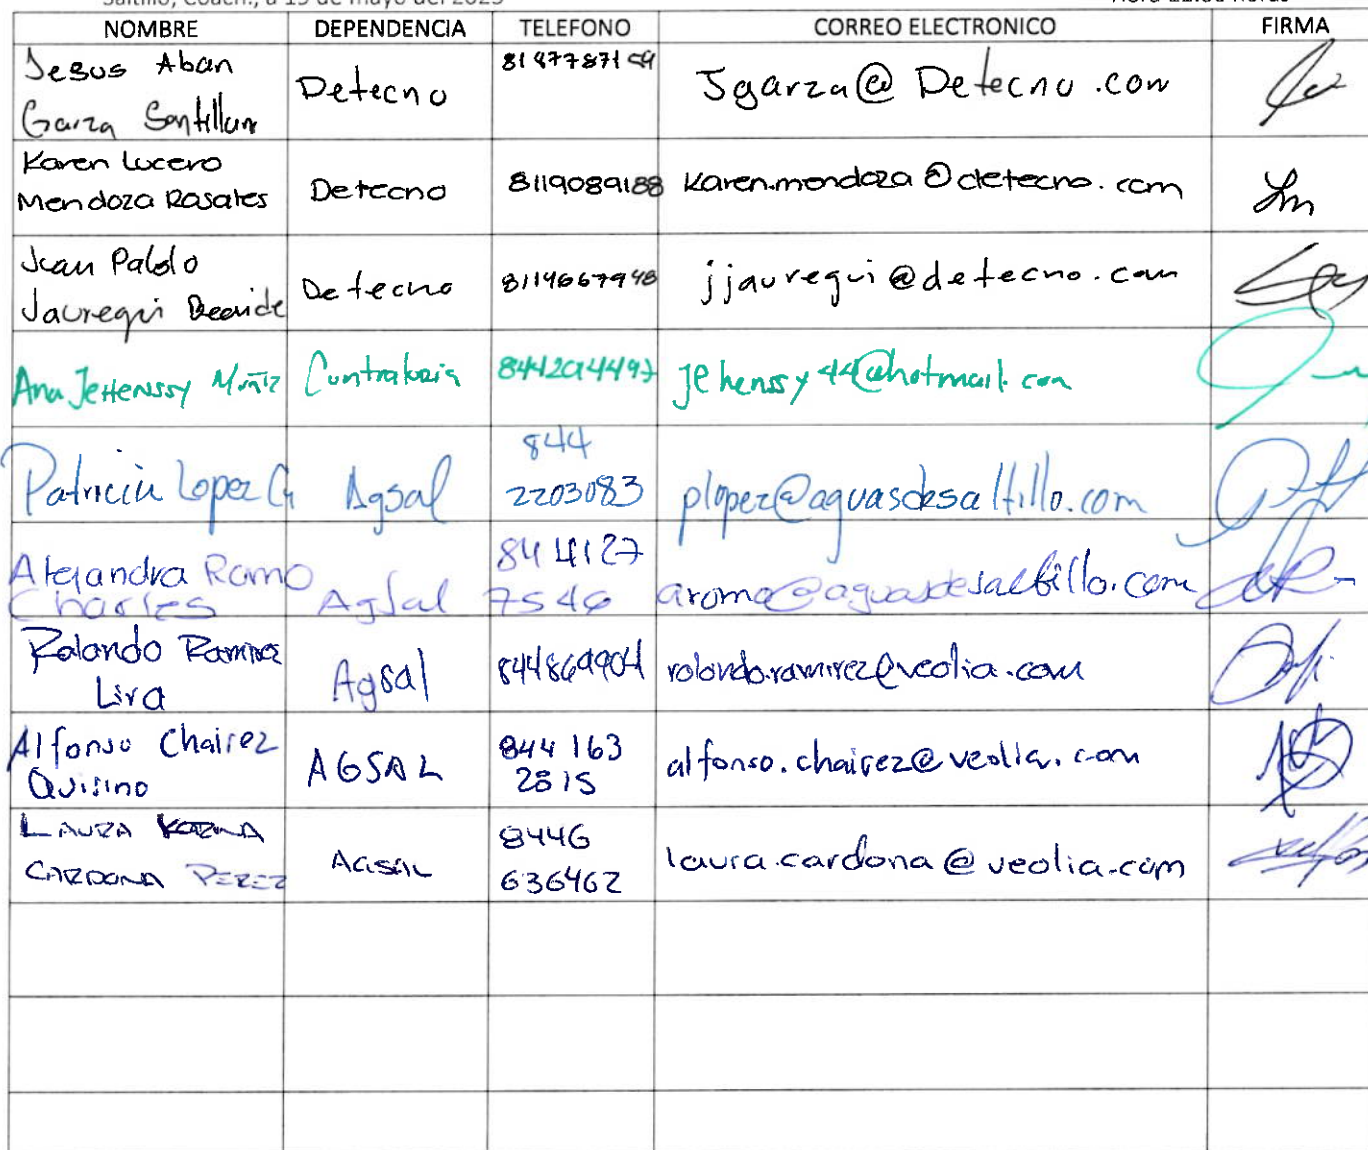 NOMBRE DEPENDENCIA TELEFONO CORREO ELECTRONICO FIRMA
Jesus Aban
Garza Santillan
Detecno
Jgarza@Detecno.com
Karen Lucero
Mendoza Rosales
Detecno
8119089188
karen.mendoza@detecno.com
Juan Pablo
Jauregui
Detecno
8114667948
jjauregui@detecno.com
Ana Jehenssy Muñiz
Contraloria
jehenssy44@hotmail.com
Patricia Lopez G
Agsal
844
2203083
plopez@aguasdesaltillo.com
Alejandra Romo
Charles
Agsal
844127
7546
aromo@aguasdesaltillo.com
Rolando Ramirez
Lira
Agsal
844869904
rolando.ramirez@veolia.com
Alfonso Chairez
Quisino
AGSAL
844 163
2815
alfonso.chairez@veolia.com
LAURA
CARDONA PEREZ
AGSAL
8446
636462
laura.cardona@veolia.com